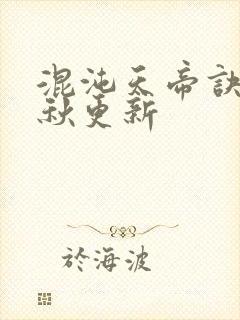 混沌天帝訣
秋更新
於海波